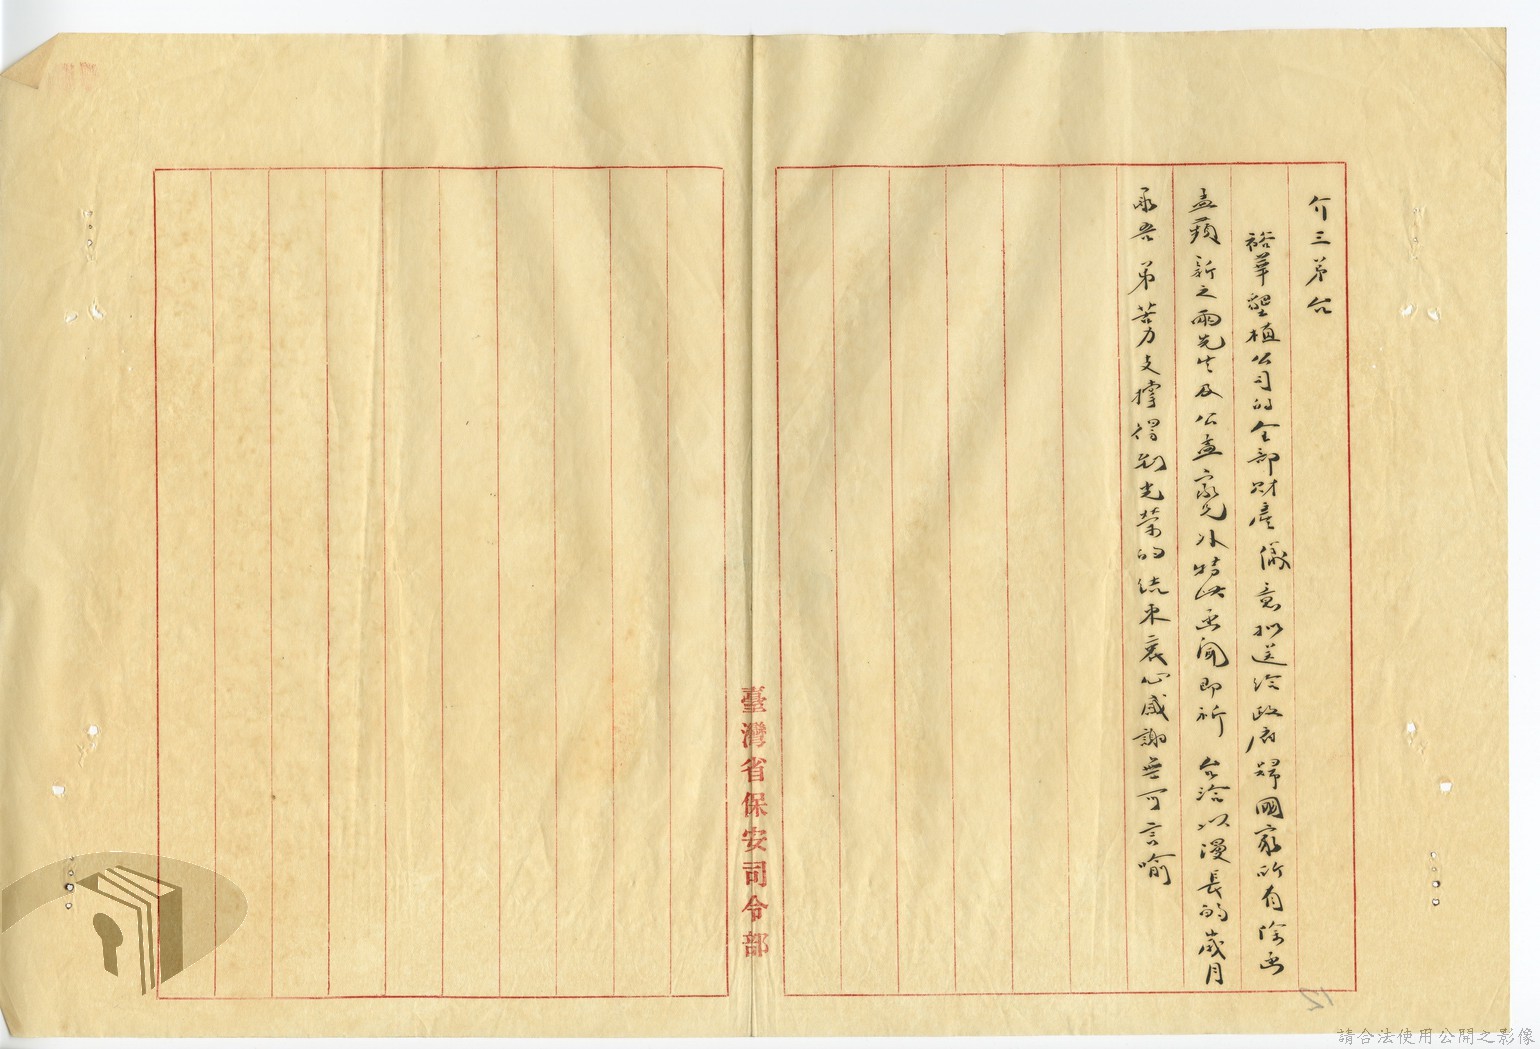 介三弟台
裕華墾植公司的全部財產儂意拟送洽政府歸國家所有除函
孟蘋新之兩先生及公孟家兄外特此函聞即祈 台洽以漫長的歲月
承吾 弟苦力支撐得到光榮的結束衷心感謝無可言喻
臺灣省保安司令部
12
請合法使用公開之影像